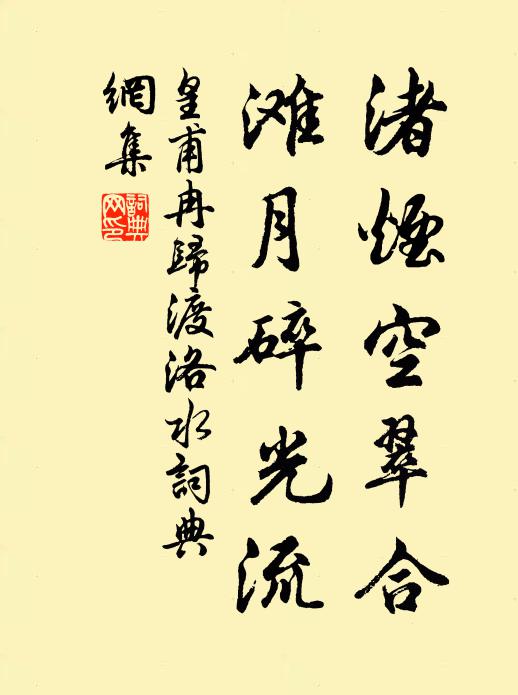 渚煙空翠合
滩月碎光流
皇甫冉歸渡洛水詞典
網集
詞典
网印